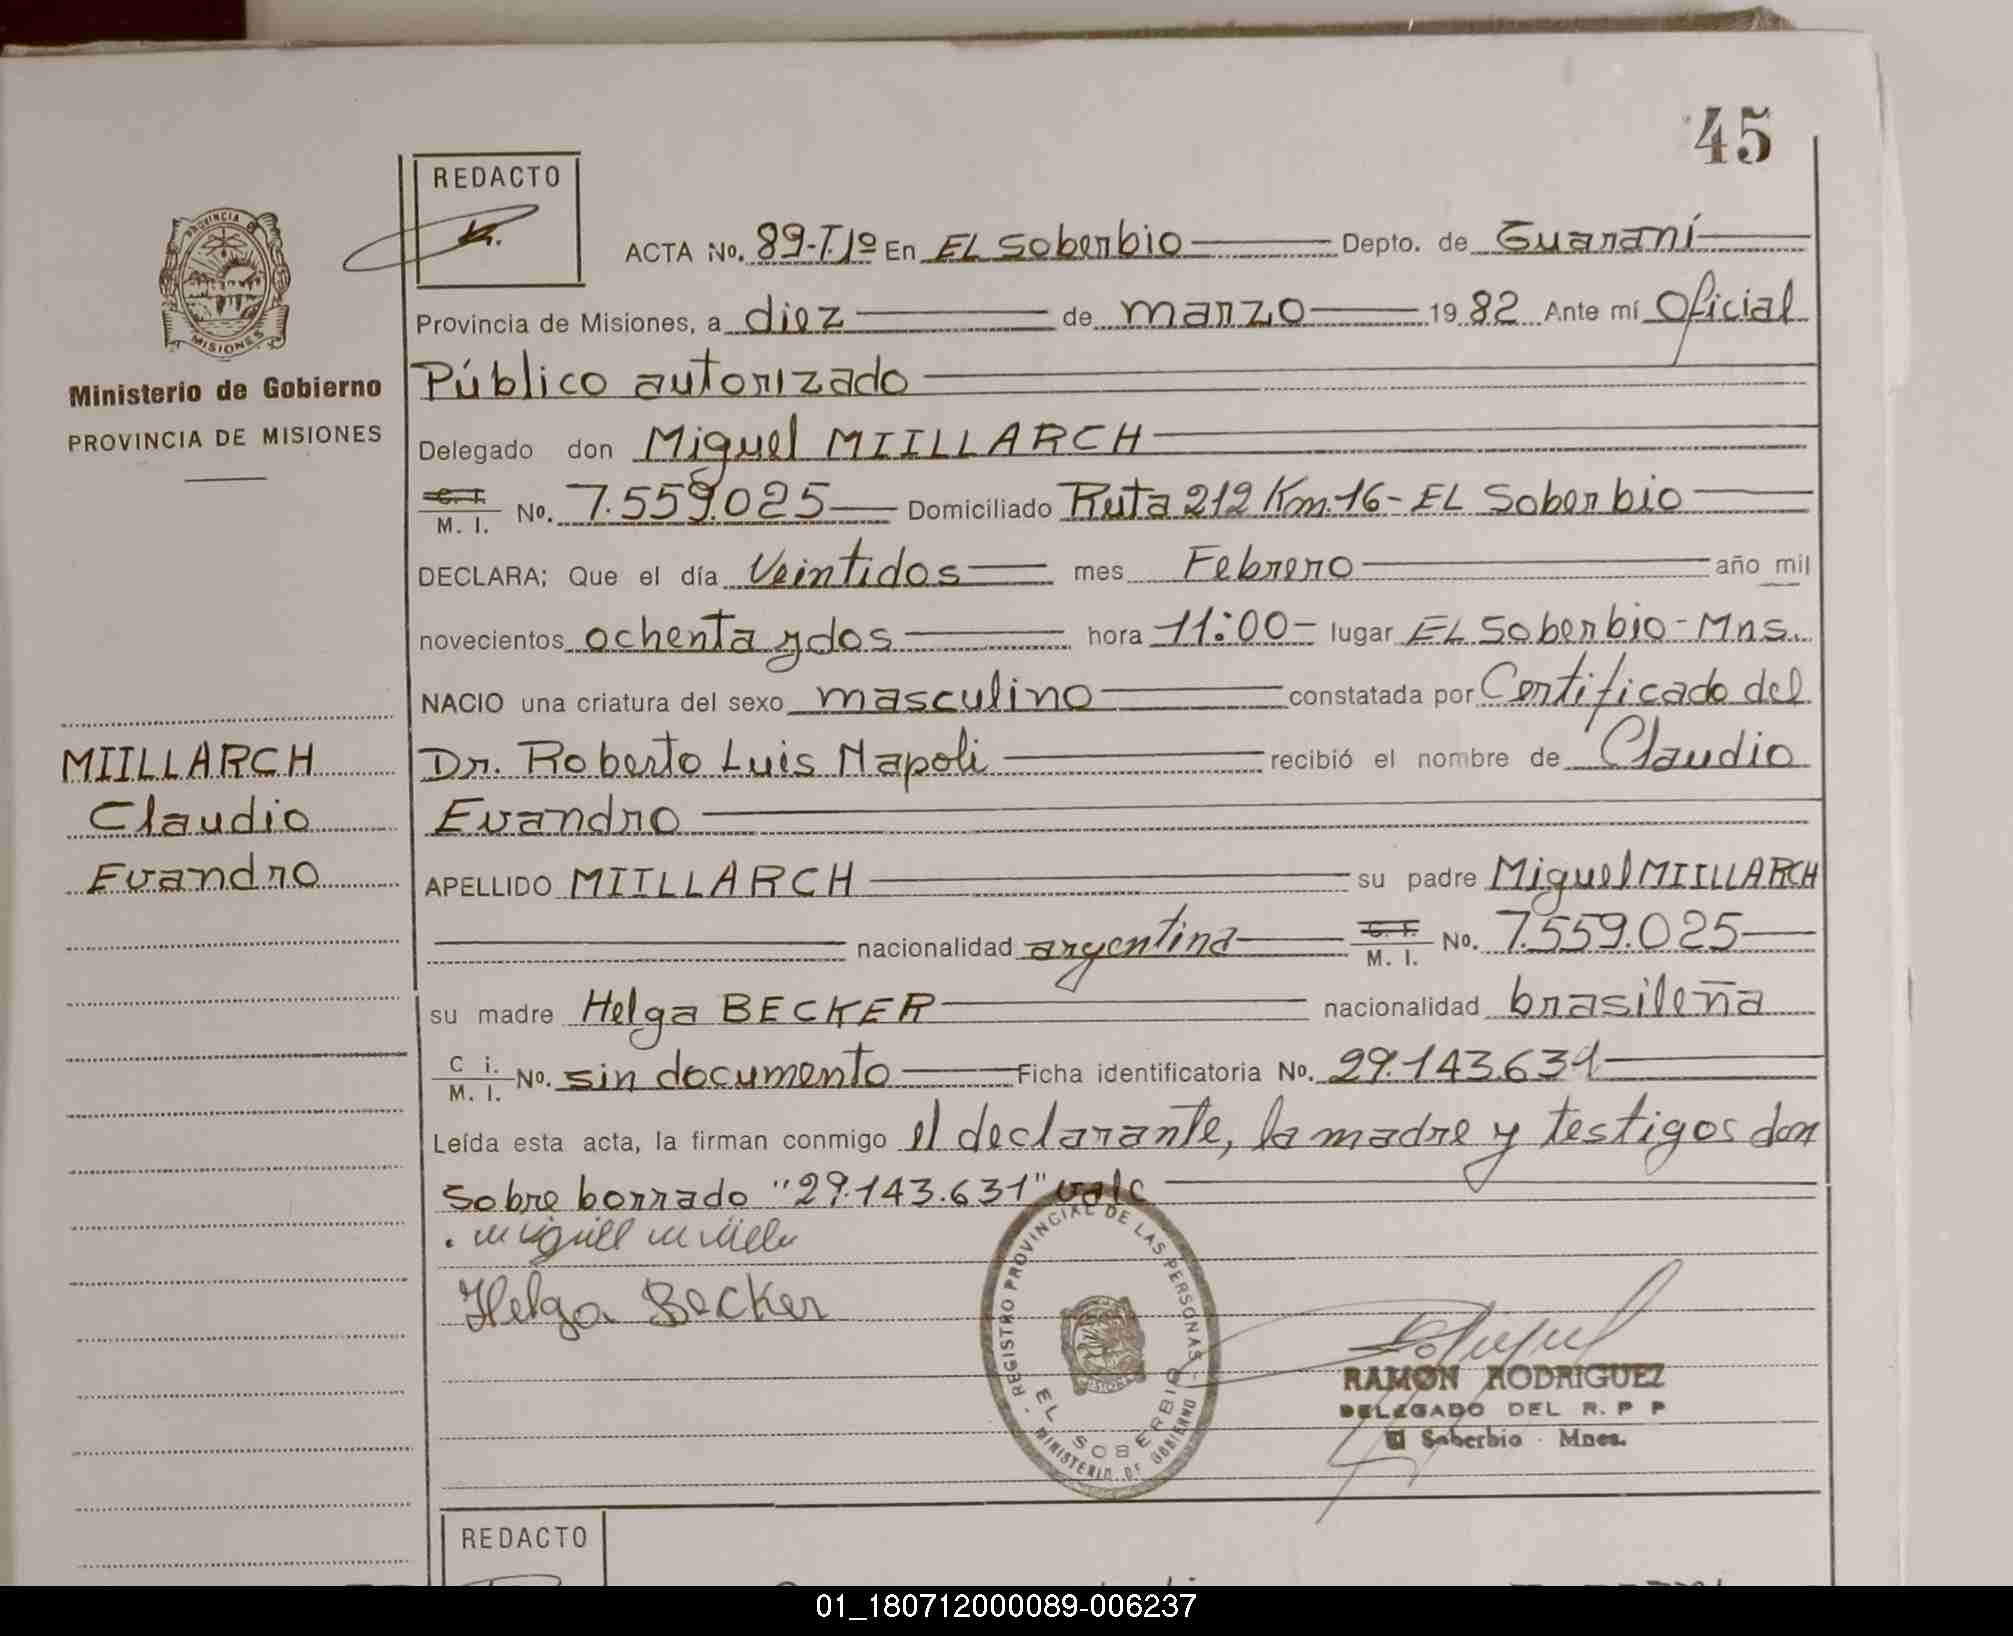 45
REDACTO
PROVINCIA DE
MISIONES
Ministerio de Gobierno
PROVINCIA DE MISIONES
ACTA No. 89-T.1º En EL Soberbio Depto. de Guaraní
Provincia de Misiones, a diez de marzo 1982 Ante mí Oficial
Público autorizado
Delegado don Miguel MIILLARCH
C. I. M. I. No. 7.559.025 Domiciliado Ruta 212 Km.16-EL Soberbio
DECLARA; Que el día Veintidos mes Febrero año mil
novecientos ochenta y dos hora 11:00- lugar EL Soberbio-Mns.
NACIO una criatura del sexo masculino constatada por Certificado del
Dr. Roberto Luis Napoli recibió el nombre de Claudio
Evandro
MIILLARCH
Claudio
Evandro
APELLIDO MIILLARCH su padre Miguel MIILLARCH
nacionalidad argentina C. I. M. I. No. 7.559.025
su madre Helga BECKER nacionalidad brasileña
C i. M. I. No. sin documento Ficha identificatoria No. 29.143.631
Leída esta acta, la firman conmigo el declarante, la madre y testigos don
Sobre borrado "29.143.631" vale
Helga Becker
REGISTRO PROVINCIAL DE LAS PERSONAS
EL SOBERBIO
MINISTERIO DE GOBIERNO
RAMON RODRIGUEZ
DELEGADO DEL R. P P
El Soberbio Mnes.
REDACTO
01_180712000089-006237